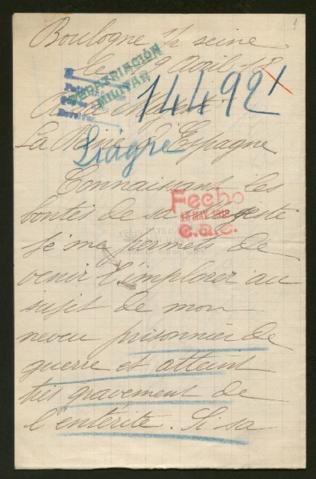 Boulogne s/ seine
le 9 Avril 18
REPATRIACIÓN
MILITAR
14492
La Reine d'Espagne
Liagre
Connaissant les
bontés de sa Majesté
Fecho
C.a.C.
je me permets de
venir l'implorer au
sujet de mon
neveu prisonnier de
guerre et atteint
très gravement de
l'entérite. Si sa